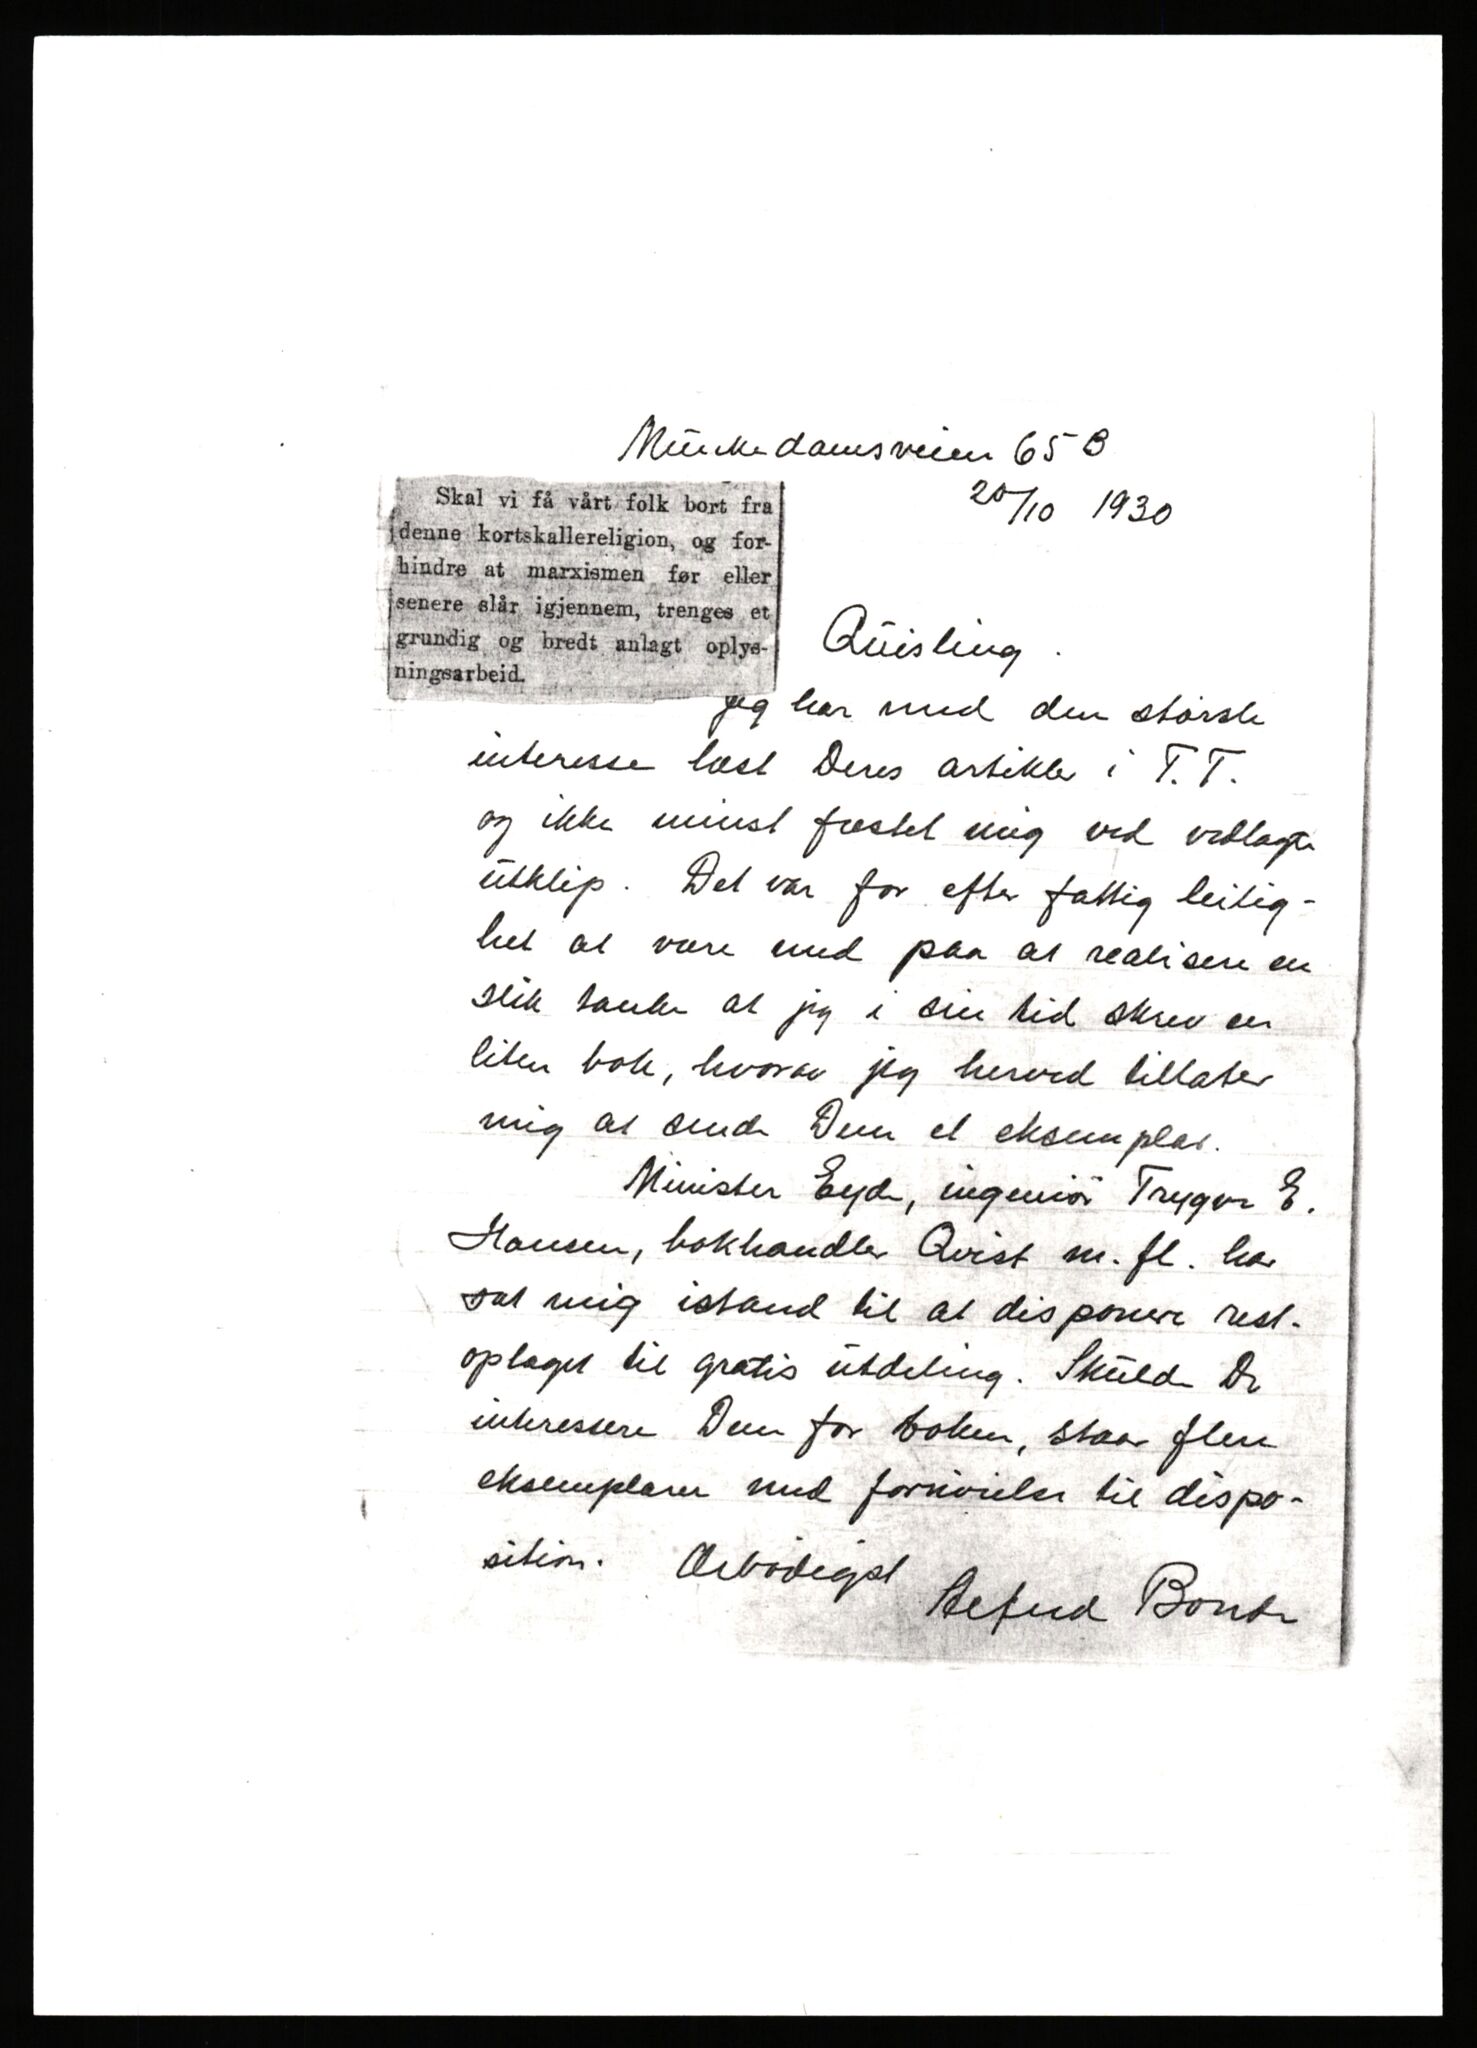 Münkedamsveien 65 B
20/10 1930
Skal vi få vårt folk bort fra
denne kortskallereligion, og for-
hindre at marxismen før eller
senere slår igjennem, trenges et
grundig og bredt anlagt oplys-
ningsarbeid.
Quisling.
Jeg har med den største
interesse læst Deres artikler i T.T.
og ikke minst fæstet mig ved vedlagte
utklip. Det var for efter fattig leilig-
het at være med paa at realisere en
slik tanke at jeg i sin tid skrev en
liten bok, hvorav jeg herved tillater
mig at sende Dem et eksemplar.
Minister Eyde, ingeniør Trygve E.
Hansen, bokhandler Qvist m. fl. har
sat mig istand til at disponere rest-
oplaget til gratis utdeling. Skulde De
interessere Dem for boken, staar flere
eksemplarer med fornøielse til dispo-
sition. Ærbødigst
Alfred Bonde